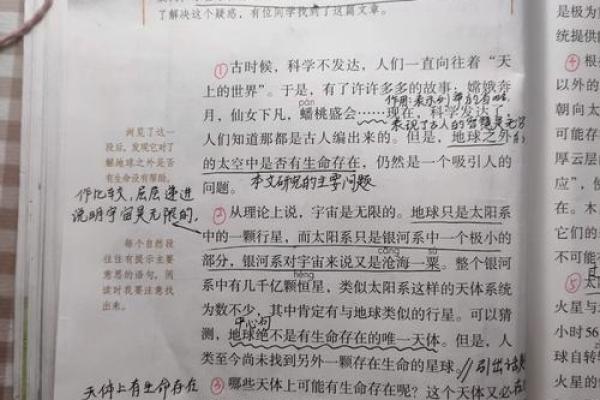 了解决这个疑惑，有位同学找到了这篇文章。
①古时候，科学不发达，人们一直向往着“天
上的世界”。于是，有了许许多多的故事：嫦娥奔
作用：表示列举的省略，
pán
月，仙女下凡，蟠桃盛会……现在，科学发达了，
表现了古人的
人们知道那都是古人编出来的。但是，地球之外
的太空中是否有生命存在，仍然是一个吸引人的
问题。
本文研究的主要问题
浏览了这一
段后，发现它对了
解地球之外是否
有生命没有帮助。
作比较，层层递进
说明宇宙是无限的，
②从理论上说，宇宙是无限的。地球只是太阳系
中的一颗行星，而太阳系只是银河系中一个极小的
cāng sù
部分，银河系对宇宙来说又是沧海一粟。整个银河
héng
系中有几千亿颗恒星，类似太阳系这样的天体系统
为数不少，其中肯定有与地球类似的行星。可以猜
中心句
测，地球绝不是有生命存在的唯一天体。但是，人
类至今尚未找到另外一颗存在生命的星球。
引出话题
每个自然段
往往有提示主要
意思的语句，阅
读时我要注意找
出来。
天体上有生命存在
③哪些天体上可能有生命存在呢？这个天体又必
是极为
统提供
④根
以外的
朝向太
可能存
厚云层
应”，使
在。木
它们的
不可能
⑤太
火星与
小时56
球自转
火星与